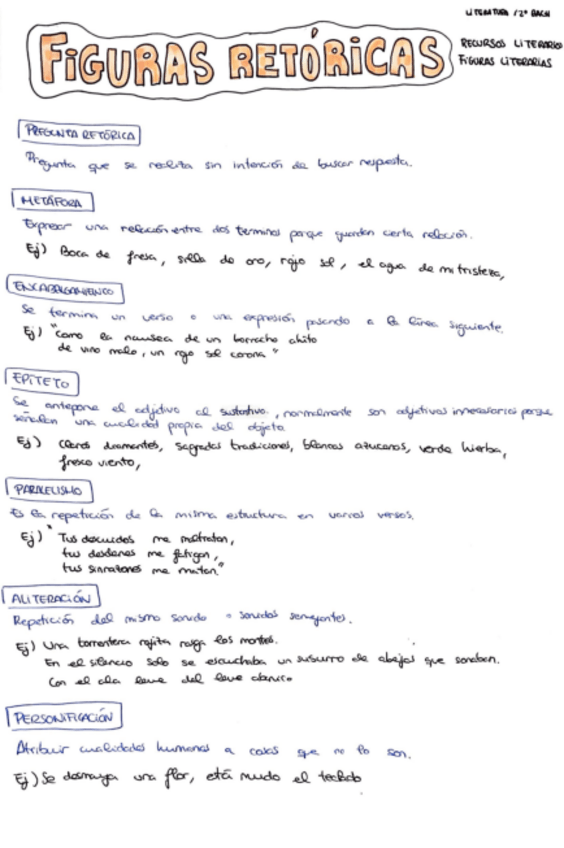 LITERATURA / 2º BACH
FIGURAS RETÓRICAS
RECURSOS LITERARIOS
FIGURAS LITERARIAS
PREGUNTA RETÓRICA
Pregunta que se realiza sin intención de buscar respuesta.
METÁFORA
Expresar una relación entre dos terminos porque guardan cierta relación.
Ej) Boca de fresa, silla de oro, rojo sol, el agua de mi tristeza,
ENCABALGAMIENTO
Se termina un verso o una expresión pasando a la línea siguiente.
Ej) "como la nausea de un borracho ahito
de vino malo, un rojo sol corona"
EPÍTETO
Se antepone el adjetivo al sustantivo, normalmente son adjetivos innecesarios porque
señalan una cualidad propia del objeto.
Ej) Claros diamentes, sagradas tradiciones, blancos azucaros, verde hierba,
fresco viento,
PARALELISMO
Es la repetición de la misma estructura en varios versos.
Ej) "Tus descuidos me maltratan,
tus desdenes me fatigan,
tus sinrazones me matan"
ALITERACIÓN
Repetición del mismo sonido o sonidos semejantes.
Ej) Una torrentera rojita rasga los montes.
En el silencio solo se escuchaba un susurro de abejas que sonaban.
Con el ala leve del leve abanico
PERSONIFICACIÓN
Atribuir cualidades humanas a cosas que no lo son.
Ej) Se desmaya una flor, está mudo el teclado